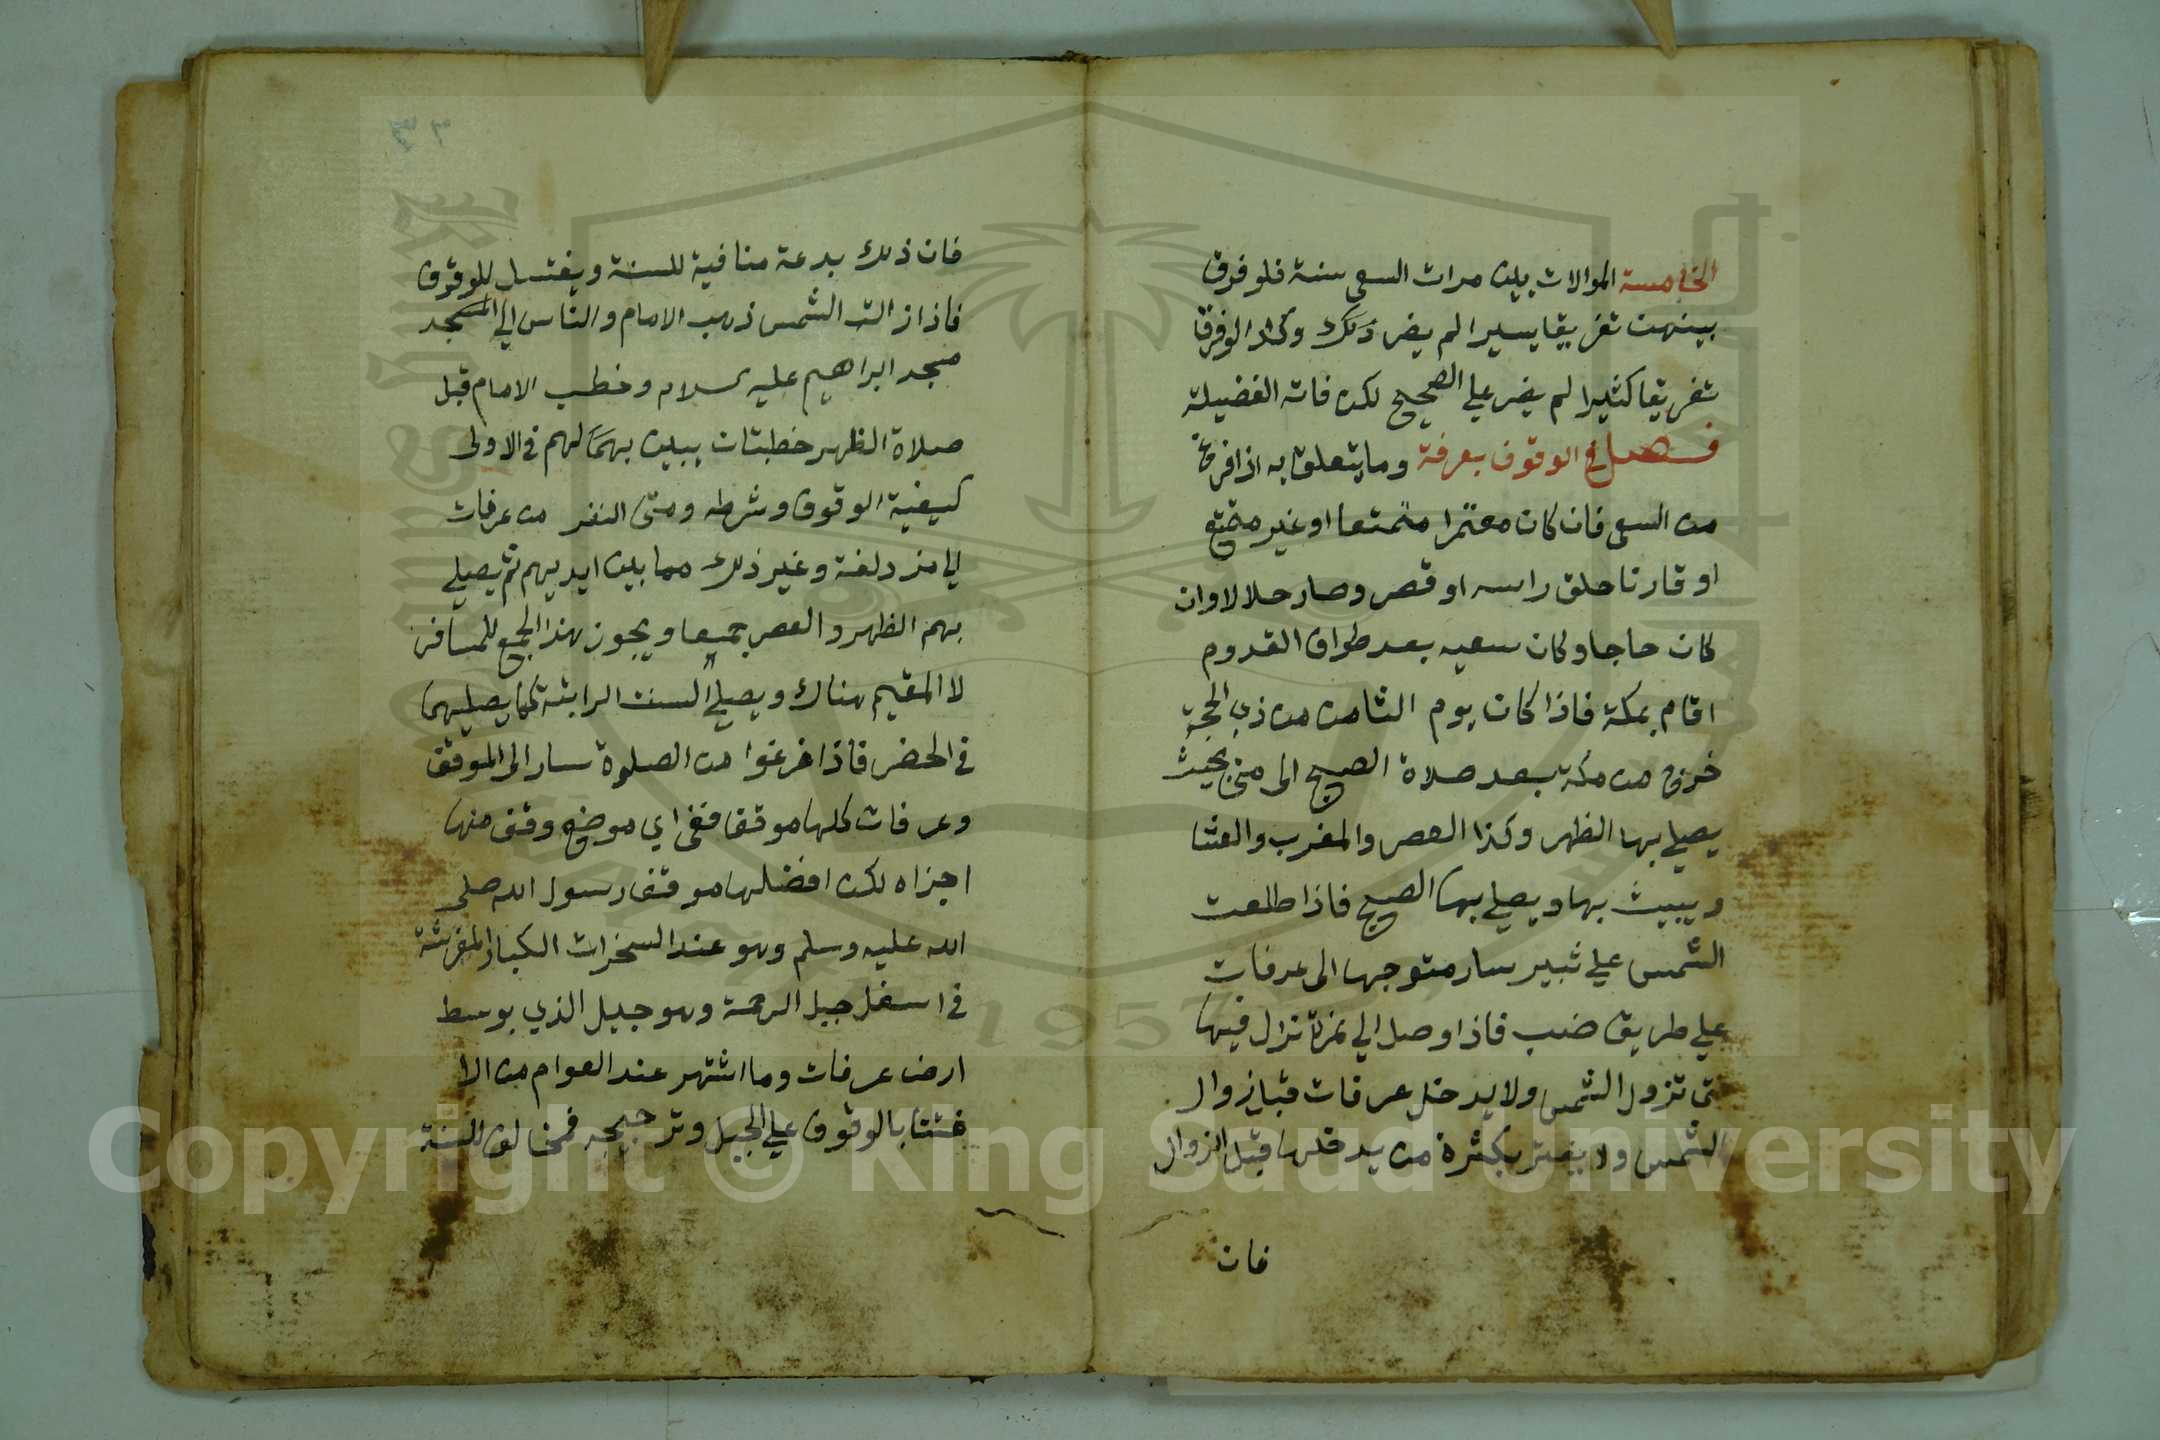 الخامسة الموالات بين مرات السعى سنة فلو فرق
بينهن تفريقا يسيرا لم يضر ذلك وكذا لو فرق
تفريقا كثيرا لم يضر علي الصحيح لكن فاته الفضيلة
فصل في الوقوف بعرفة وما يتعلق به اذا فرغ
من السعى فان كان معتمرا متمتعا او غير متمتع
او قارنا حلق راسه او قصر وصار حلالا وان
كان حاجا وكان سعيه بعد طواف القدوم
اقام بمكة فاذا كان يوم الثامن من ذي الحجة
خرج من مكة بعد صلاة الصبح الى منى بحيث
يصلي بها الظهر وكذا العصر والمغرب والعشا
ويبيت بها ويصلي بها الصبح فاذا طلعت
الشمس علي ثبير سار متوجها الى عرفات
علي طريق ضب فاذا وصل الي نمرة نزل فيها
حتى تزول الشمس ولا يدخل عرفات قبل زوال
الشمس ولا يغتر بكثرة من يدخلها قبل الزوال
فان
فان ذلك بدعة منافية للسنة ويغتسل للوقوف
فاذا زالت الشمس ذهب الامام والناس الي المسجد
مسجد ابراهيم عليه السلام وخطب الامام قبل
صلاة الظهر خطبتان يبين بهما لهم في الاولى
كيفية الوقوف وشرطه ومتى النفر من عرفات
الي مزدلفة وغير ذلك مما بين ايديهم ثم يصلي
بهم الظهر والعصر جميعا ويجوز هذا الجمع للمسافر
لا المقيم هناك ويصلي السنن الراتبة كما يصليها
في الحضر فاذا فرغوا من الصلوة سار الى الموقف
وعرفات كلها موقف ففي اي موضع وقف منها
اجزاه لكن افضلها موقف رسول الله صلى
الله عليه وسلم وهو عند السخرات الكبار المفرشة
في اسفل جبل الرحمة وهو جبيل الذي بوسط
ارض عرفات وما اشتهر عند العوام من الا
غتنا بالوقوف علي الجبل وترجيحه فمخالف للسنة